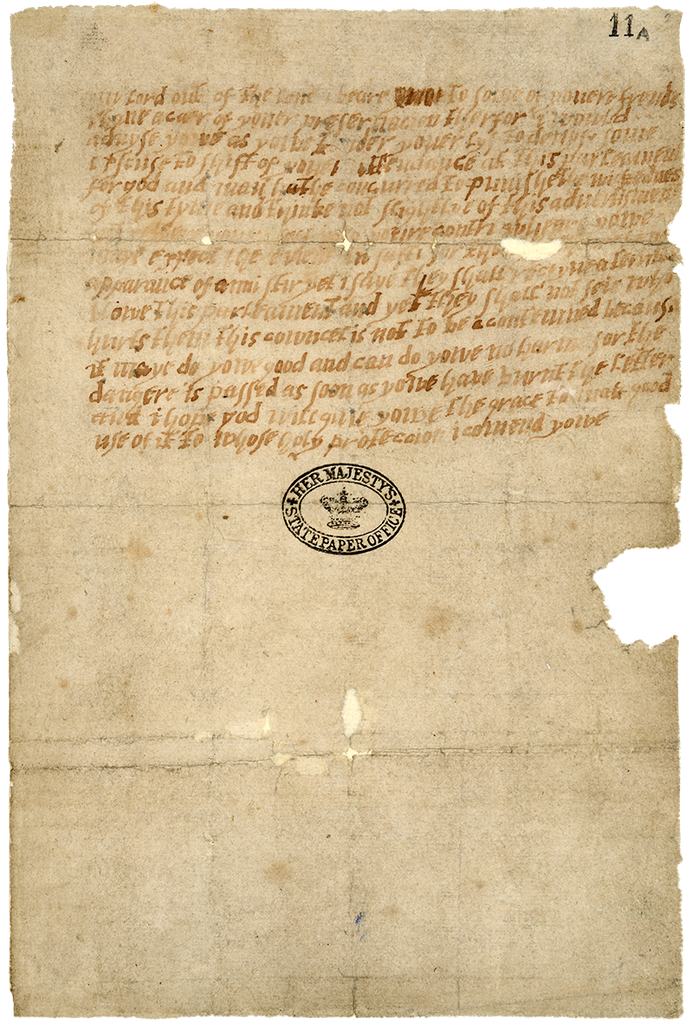 11 A
lord out of the love i beare yowe to some of youere frends
i have a caer of youer preseruacion therfor i would
aduyse yowe as yowe tender youer lyf to devyse some
excuse to shift of youer attendance at this parleament
for god and man hathe concurred to punishe the wickednes
of this tyme and thinke not slightlye of this aduertisment
contri wheare yowe
maye expect the event in safti for
apparance of anni stir yet i saye they shall receyve a terribel
blowe this parleament and yet they shall not seie who
hurts them this cowncel is not to be a contemned because
it maye do yowe good and can do yowe no harme for the
dangere is passed as soon as yowe have burnt the letter
and i hope god will give yowe the grace to mak good
use of it to whose holy proteccion i comend yowe
HER MAJESTY'S
STATE PAPER OFFICE